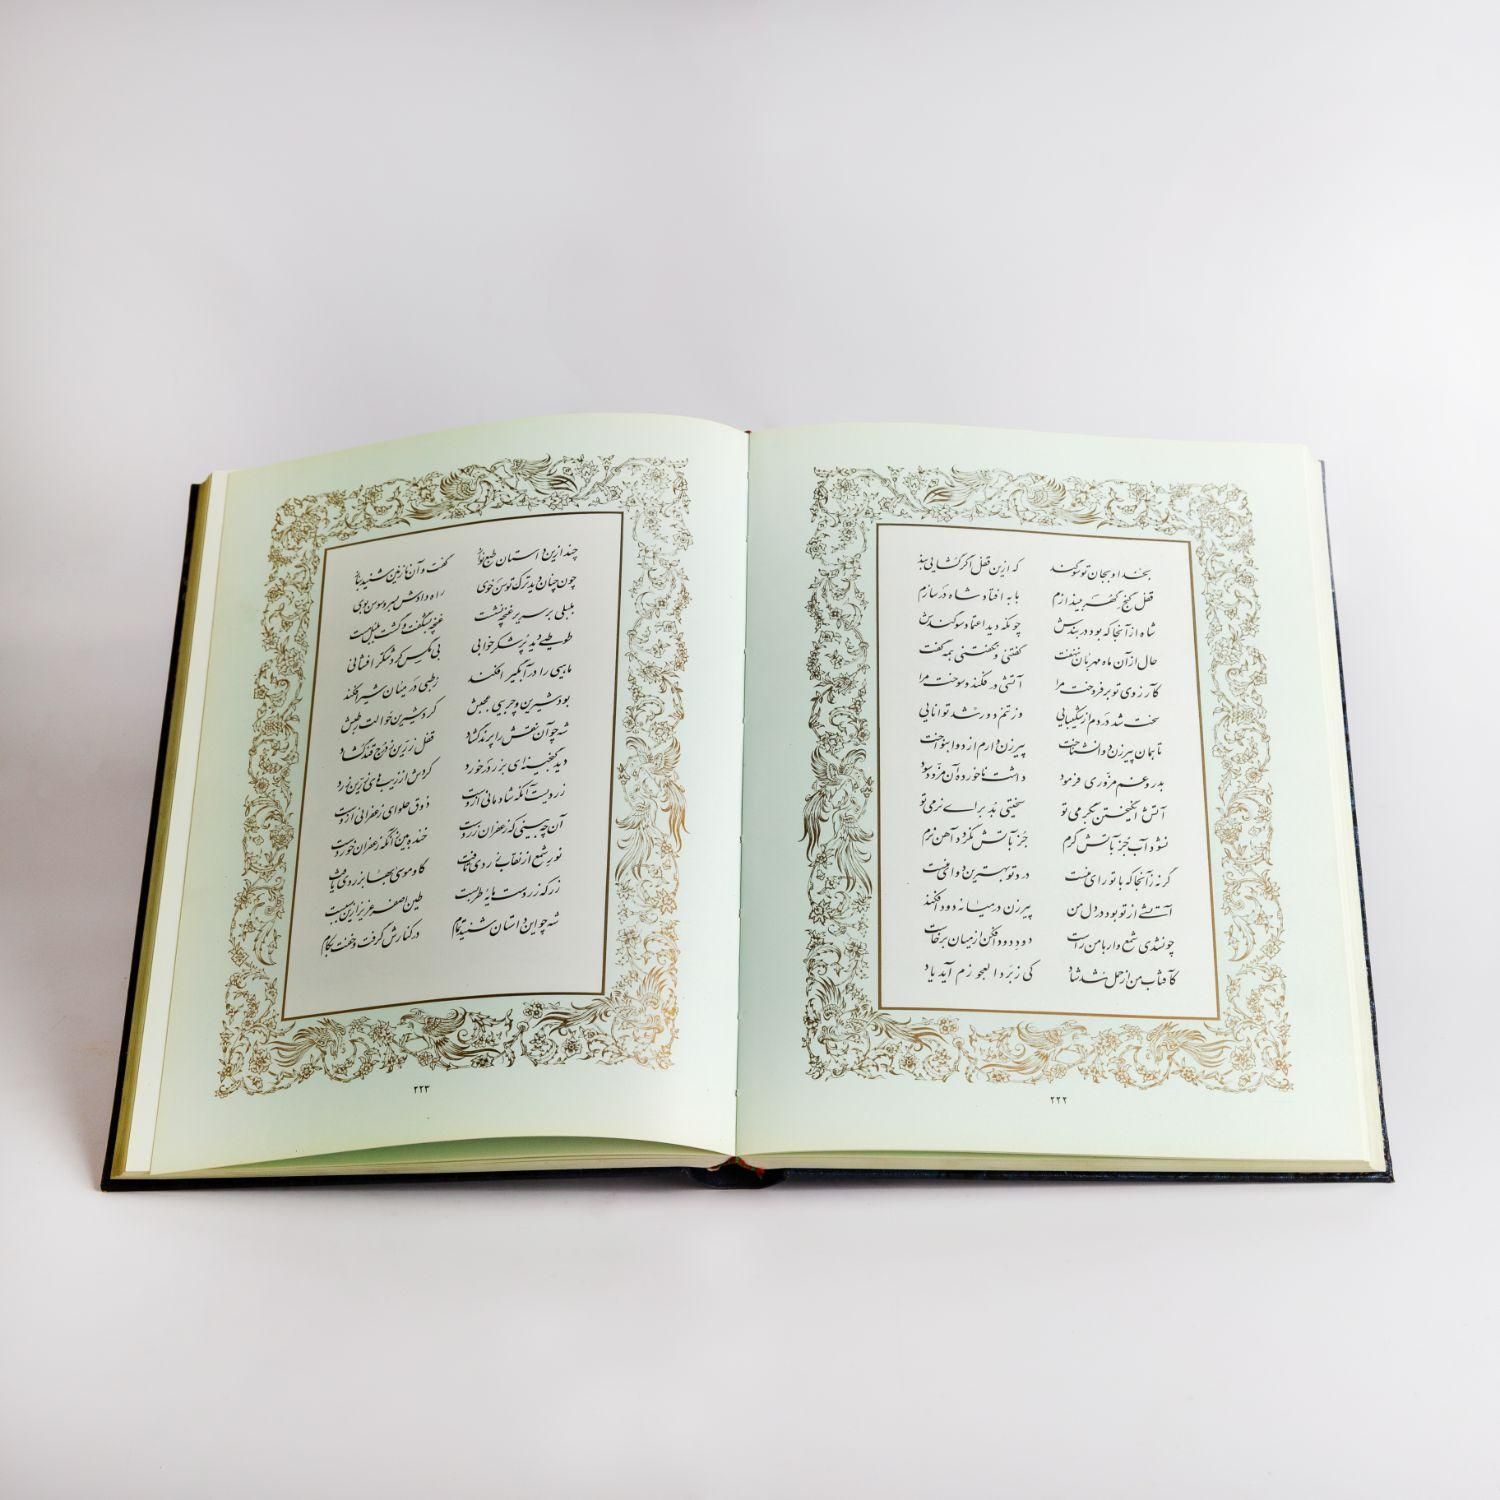 بخدا و بجان تو سوگند که ازین قفل اگر گشایی بند
قفل گنج گهر بیندازم با به افتاد شاه در سازم
شاه از آنجا که بود در بندش چونکه دید اعتماد سوگندش
حال از آن ماه مهربان ننهفت گفتنی و نگفتنی همه گفت
کآرزوی تو بر فروخت مرا آتشی در فکند و سوخت مرا
سخت شد دردم از شکیبایی وز تنم دور شد توانایی
تا همان پیرزن دوا نشناخت پیرزن وارم از دوا بنواخت
بدروغم مزوری فرمود داشت ناخورده آن مزور سود
آتش انگیختن بگرمی تو سختیی بد برای نرمی تو
نشود آب جز بآتش گرم جز بآتش نگردد آهن نرم
گرنه زآنجا که با تو رای منست درد تو بهترین دوای منست
آتشی از تو بود در دل من پیرزن در میانه دود افکن
چون شدی شمع وار با من راست دود دود افکن از میان برخاست
کآفتاب من از حمل شد شاد کی ز برد العجوزم آید یاد
۲۲۲
چند ازین داستان طبع نواز گفت و آن نازنین شنید بناز
چون چنان دید ترک توسن خوی راه دادش بسرو سوسن بوی
بلبلی بر سریر غنچه نشست غنچه بشگفت و گشت بلبل مست
طوطیی دید پر شکر خوانی بی مگس کرد شکر افشانی
ماهیی را در آبگیر افکند رطبی در میان شیر افکند
بود شیرین و چربیی عجبش کرد شیرین حوالت رطبش
شه چو آن نقش را پرند گشاد قفل زرین ز درج قند گشاد
دید گنجینه‌ای بزر درخورد کردش از زیب‌های زرین زرد
زردیست آنکه شادمانی ازوست ذوق حلوای زعفرانی ازوست
آن چه بینی که زعفران زردست خنده بین آنکه زعفران خوردست
نور شمع از نقاب زردی تافت گاو موسی بها بزردی یافت
زر که زردست مایهٔ طربست طین اصفر عزیز ازین سببست
شه چو این داستان شنید تمام در کنارش گرفت و خفت بکام
۲۲۳